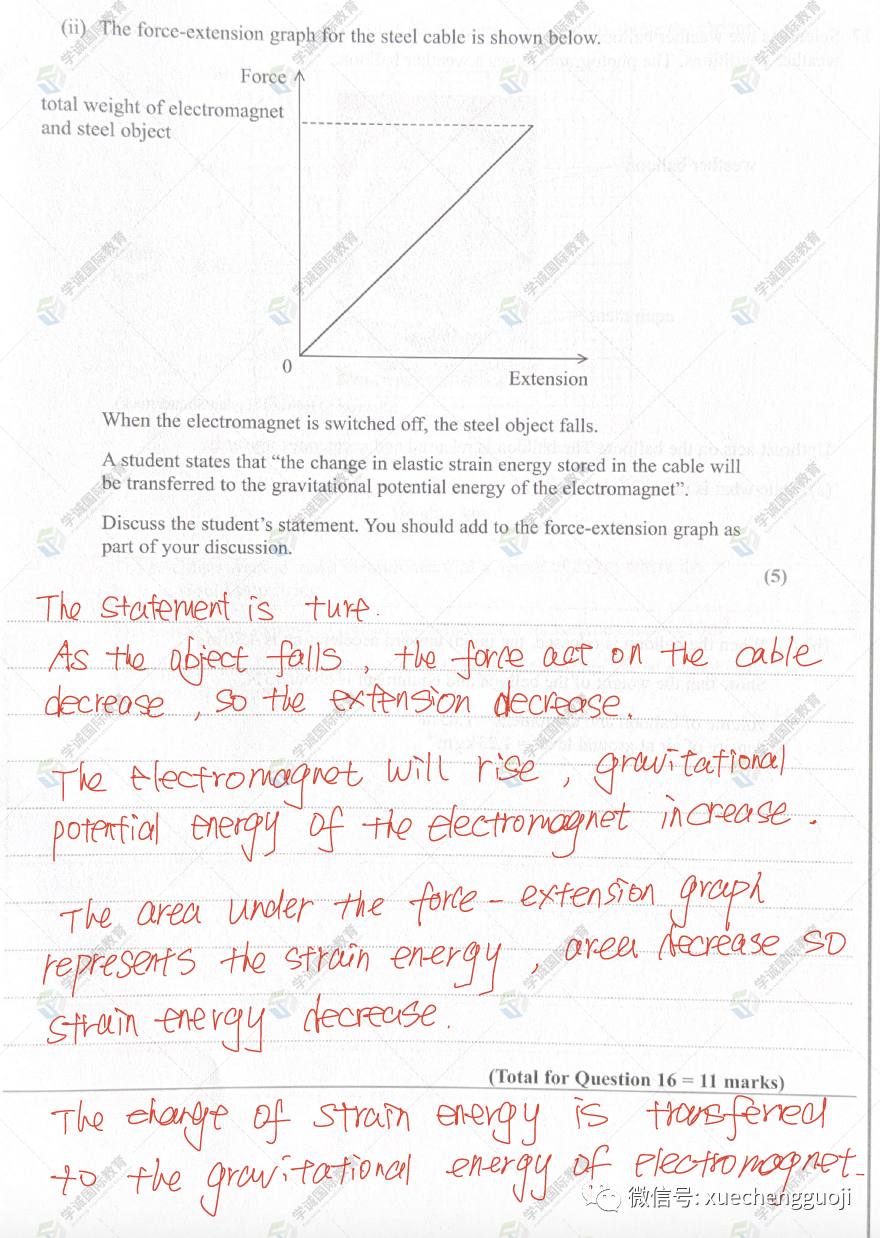 (ii) The force-extension graph for the steel cable is shown below.
Force
total weight of electromagnet
and steel object
0
Extension
When the electromagnet is switched off, the steel object falls.
A student states that “the change in elastic strain energy stored in the cable will
be transferred to the gravitational potential energy of the electromagnet”.
Discuss the student’s statement. You should add to the force-extension graph as
part of your discussion.
(5)
The statement is ture.
As the object falls, the force act on the cable
decrease, so the extension decrease.
The electromagnet will rise, gravitational
potential energy of the electromagnet increase.
The area under the force-extension graph
represents the strain energy, area decrease so
strain energy decrease.
(Total for Question 16 = 11 marks)
The change of strain energy is transferred
to the gravitational energy of electromagnet.
微信号: xuechengguoji
学诚国际教育